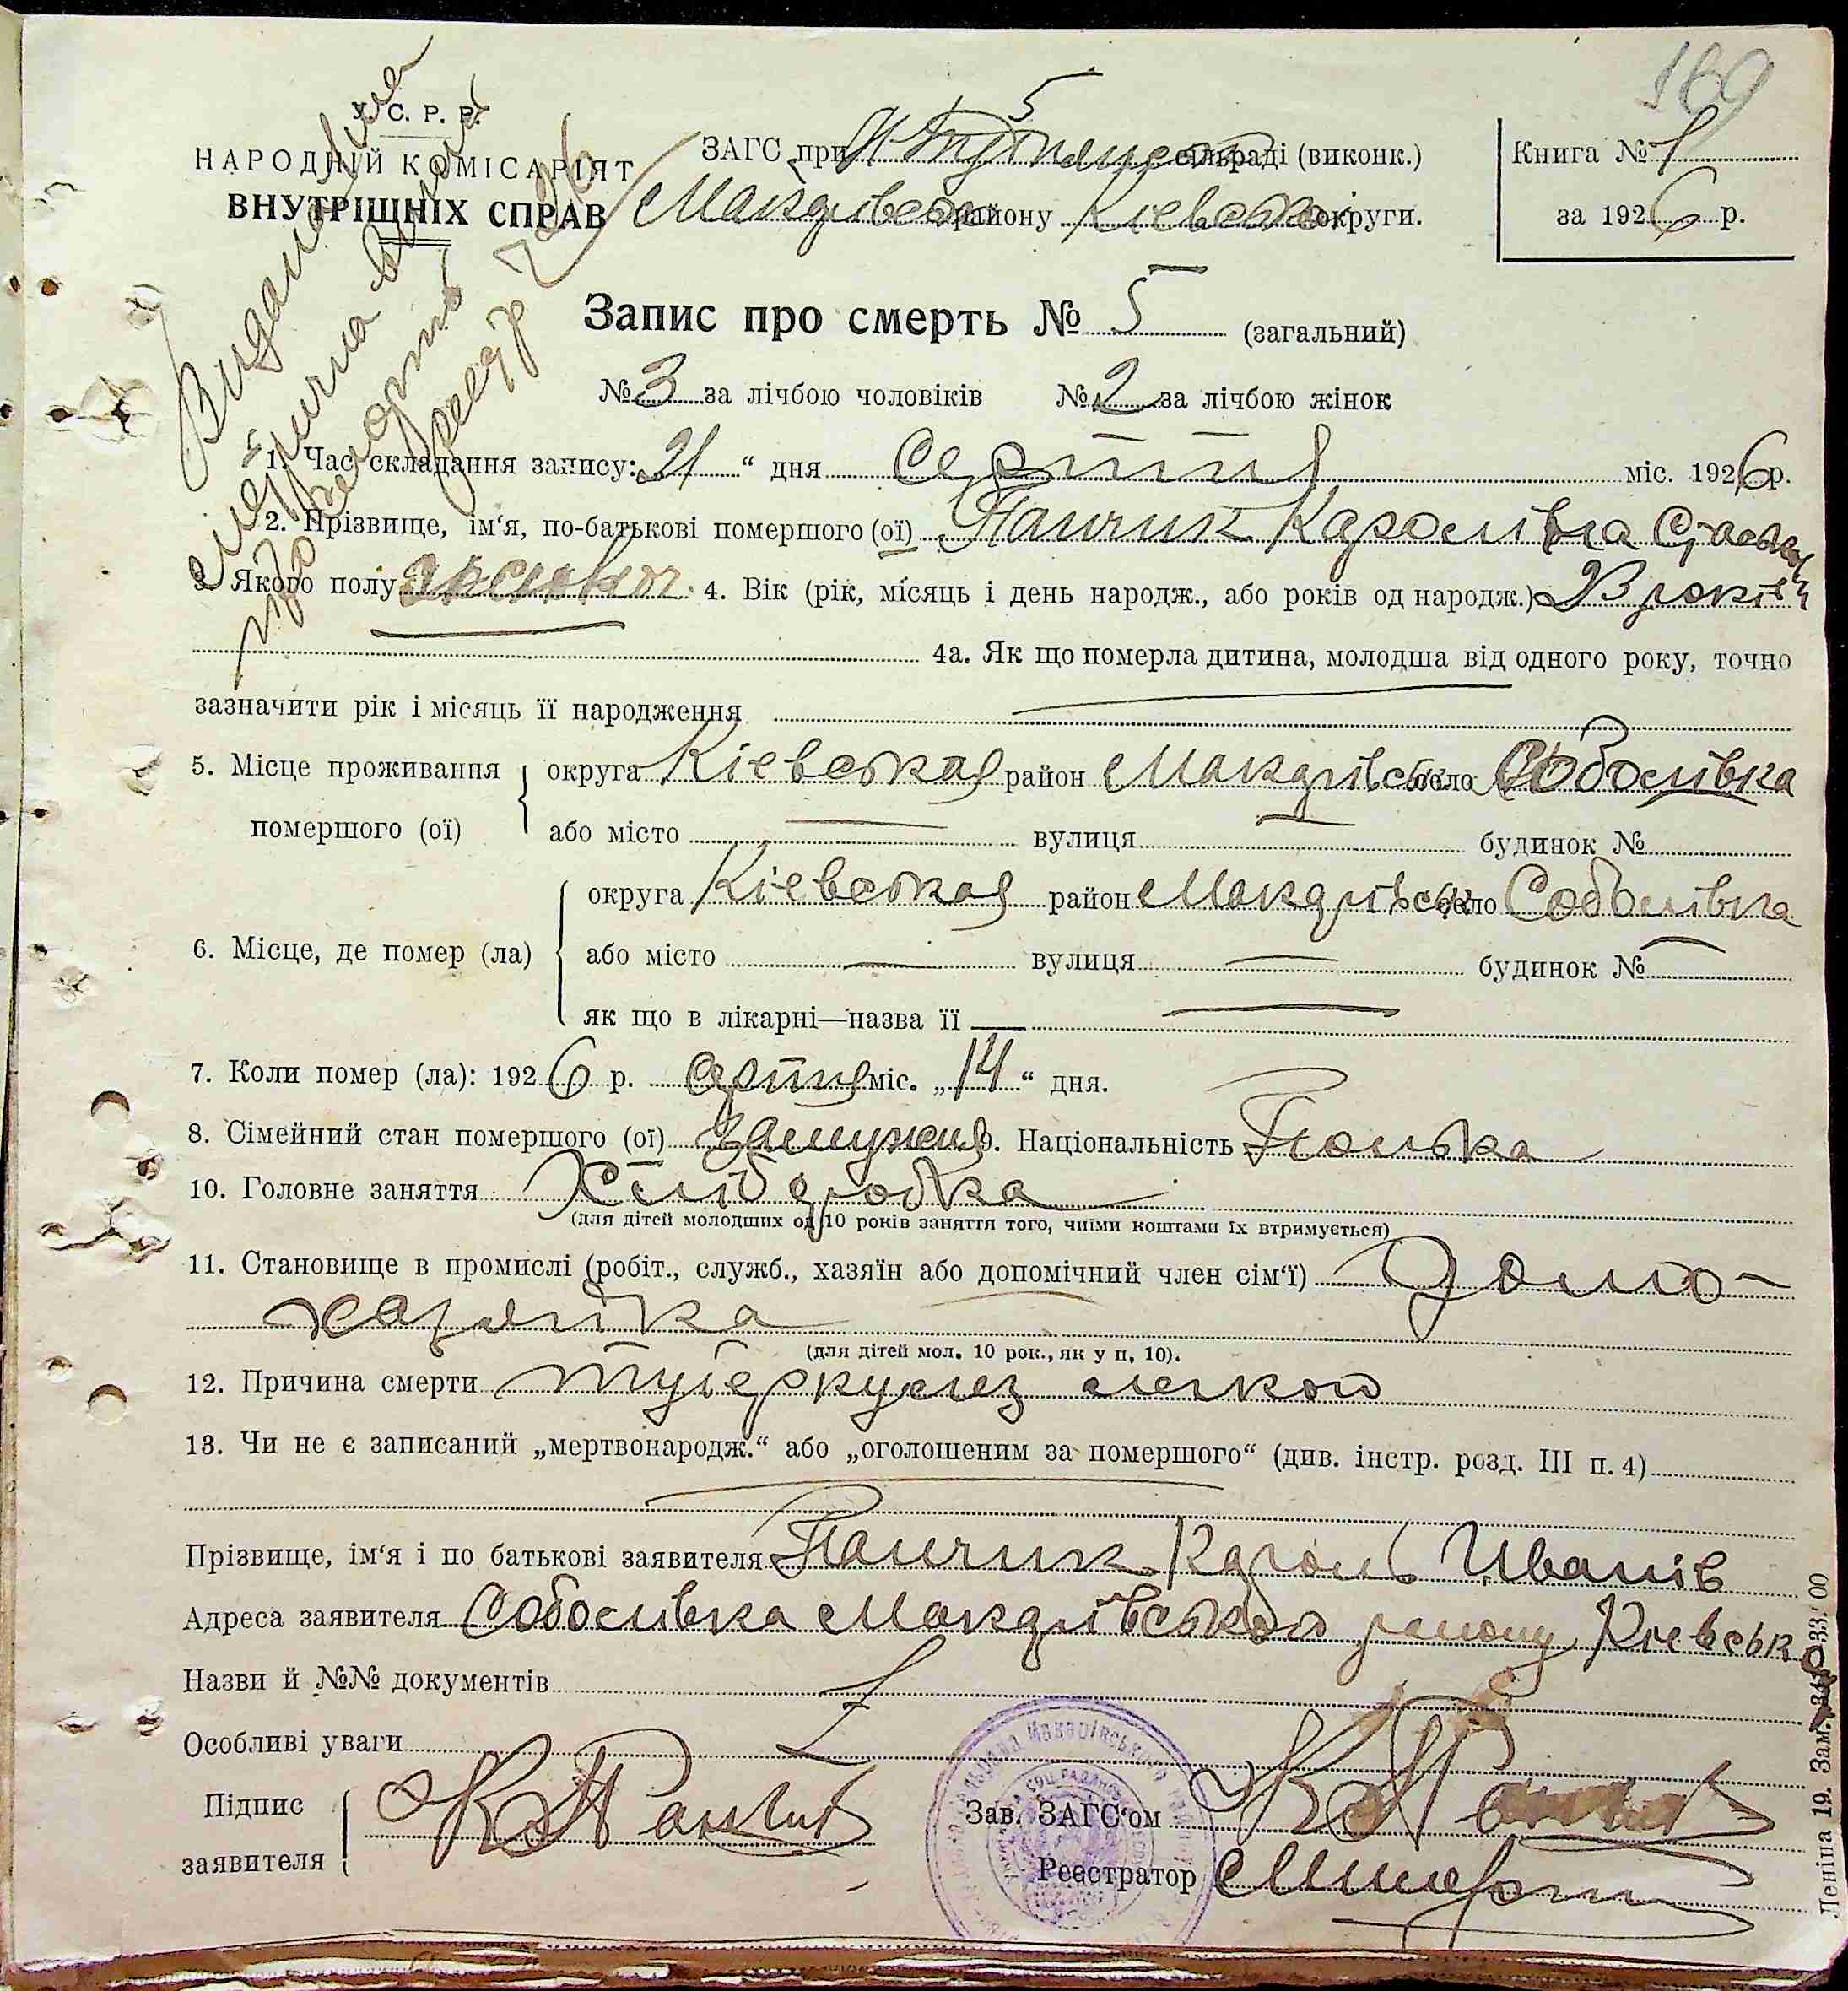 169
У. С. Р. Р.
НАРОДНІЙ КОМІСАРІЯТ
ВНУТРІШНІХ СПРАВ
5
ЗАГС при сільраді (виконк.)
Макарівськ району Кіевської округи.
Книга № 1
за 1926 р.
Запис про смерть № 5 (загальний)
№ 3 за лічбою чоловіків № 2 за лічбою жінок
1. Час складання запису: „21“ дня Серпня міс. 1926 р.
2. Прізвище, ім‘я, по-батькові помершого (ої) Панчик Кароліна
3. Якого полу 4. Вік (рік, місяць і день народж., або років од народж.) років
4а. Як що померла дитина, молодша від одного року, точно
зазначити рік і місяць її народження
5. Місце проживання помершого (ої)
округа Кіевськая район Макарівськ село Соболівка
або місто — вулиця — будинок №
6. Місце, де помер (ла)
округа Кіевськая район Макарівськ село Соболівка
або місто — вулиця — будинок № —
як що в лікарні—назва її —
7. Коли помер (ла): 1926 р. серпня міс. „14“ дня.
8. Сімейний стан помершого (ої) замужня 9. Національність Полька
10. Головне заняття Хліборобка
(для дітей молодших од 10 років заняття того, чиїми коштами їх втримується)
11. Становище в промислі (робіт., служб., хазяїн або допомічний член сім‘ї) Домо-
хазяйка
(для дітей мол. 10 рок., як у п. 10).
12. Причина смерти туберкулез легкого
13. Чи не є записаний „мертвонародж.“ або „оголошеним за помершого“ (див. інстр. розд. III п. 4)
Прізвище, ім‘я і по батькові заявителя Панчик Кароль Иванів
Адреса заявителя Соболівка Макарівського району Кіевської
Назви й №№ документів
Особливі уваги
Підпис
заявителя
Зав. ЗАГС‘ом
Реєстратор
Леніна 19. Зам.